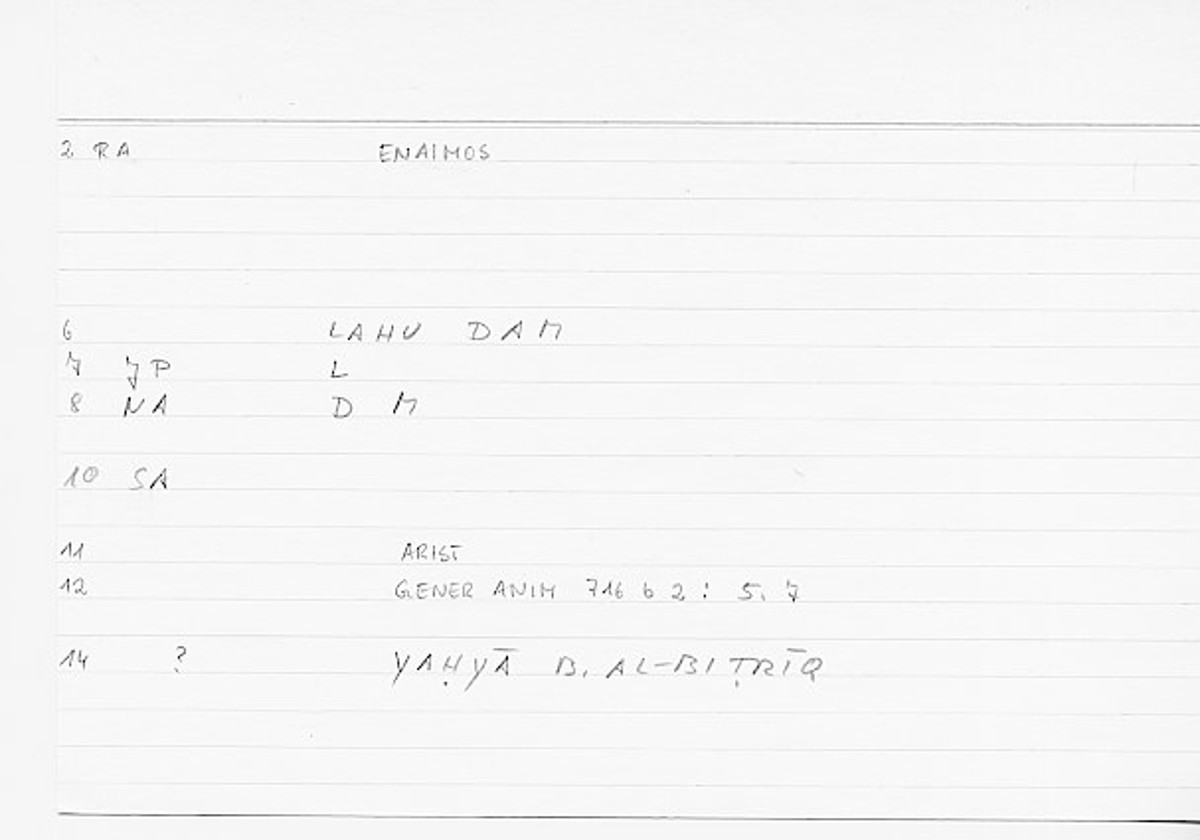 2 RA ENAIMOS
6 LAHU DAM
7 JP L
8 NA D M
10 SA
11 ARIST
12 GENER ANIM 716 b 2 : 5. 7
14 ? YAḤYĀ B. AL-BIṬRĪQ